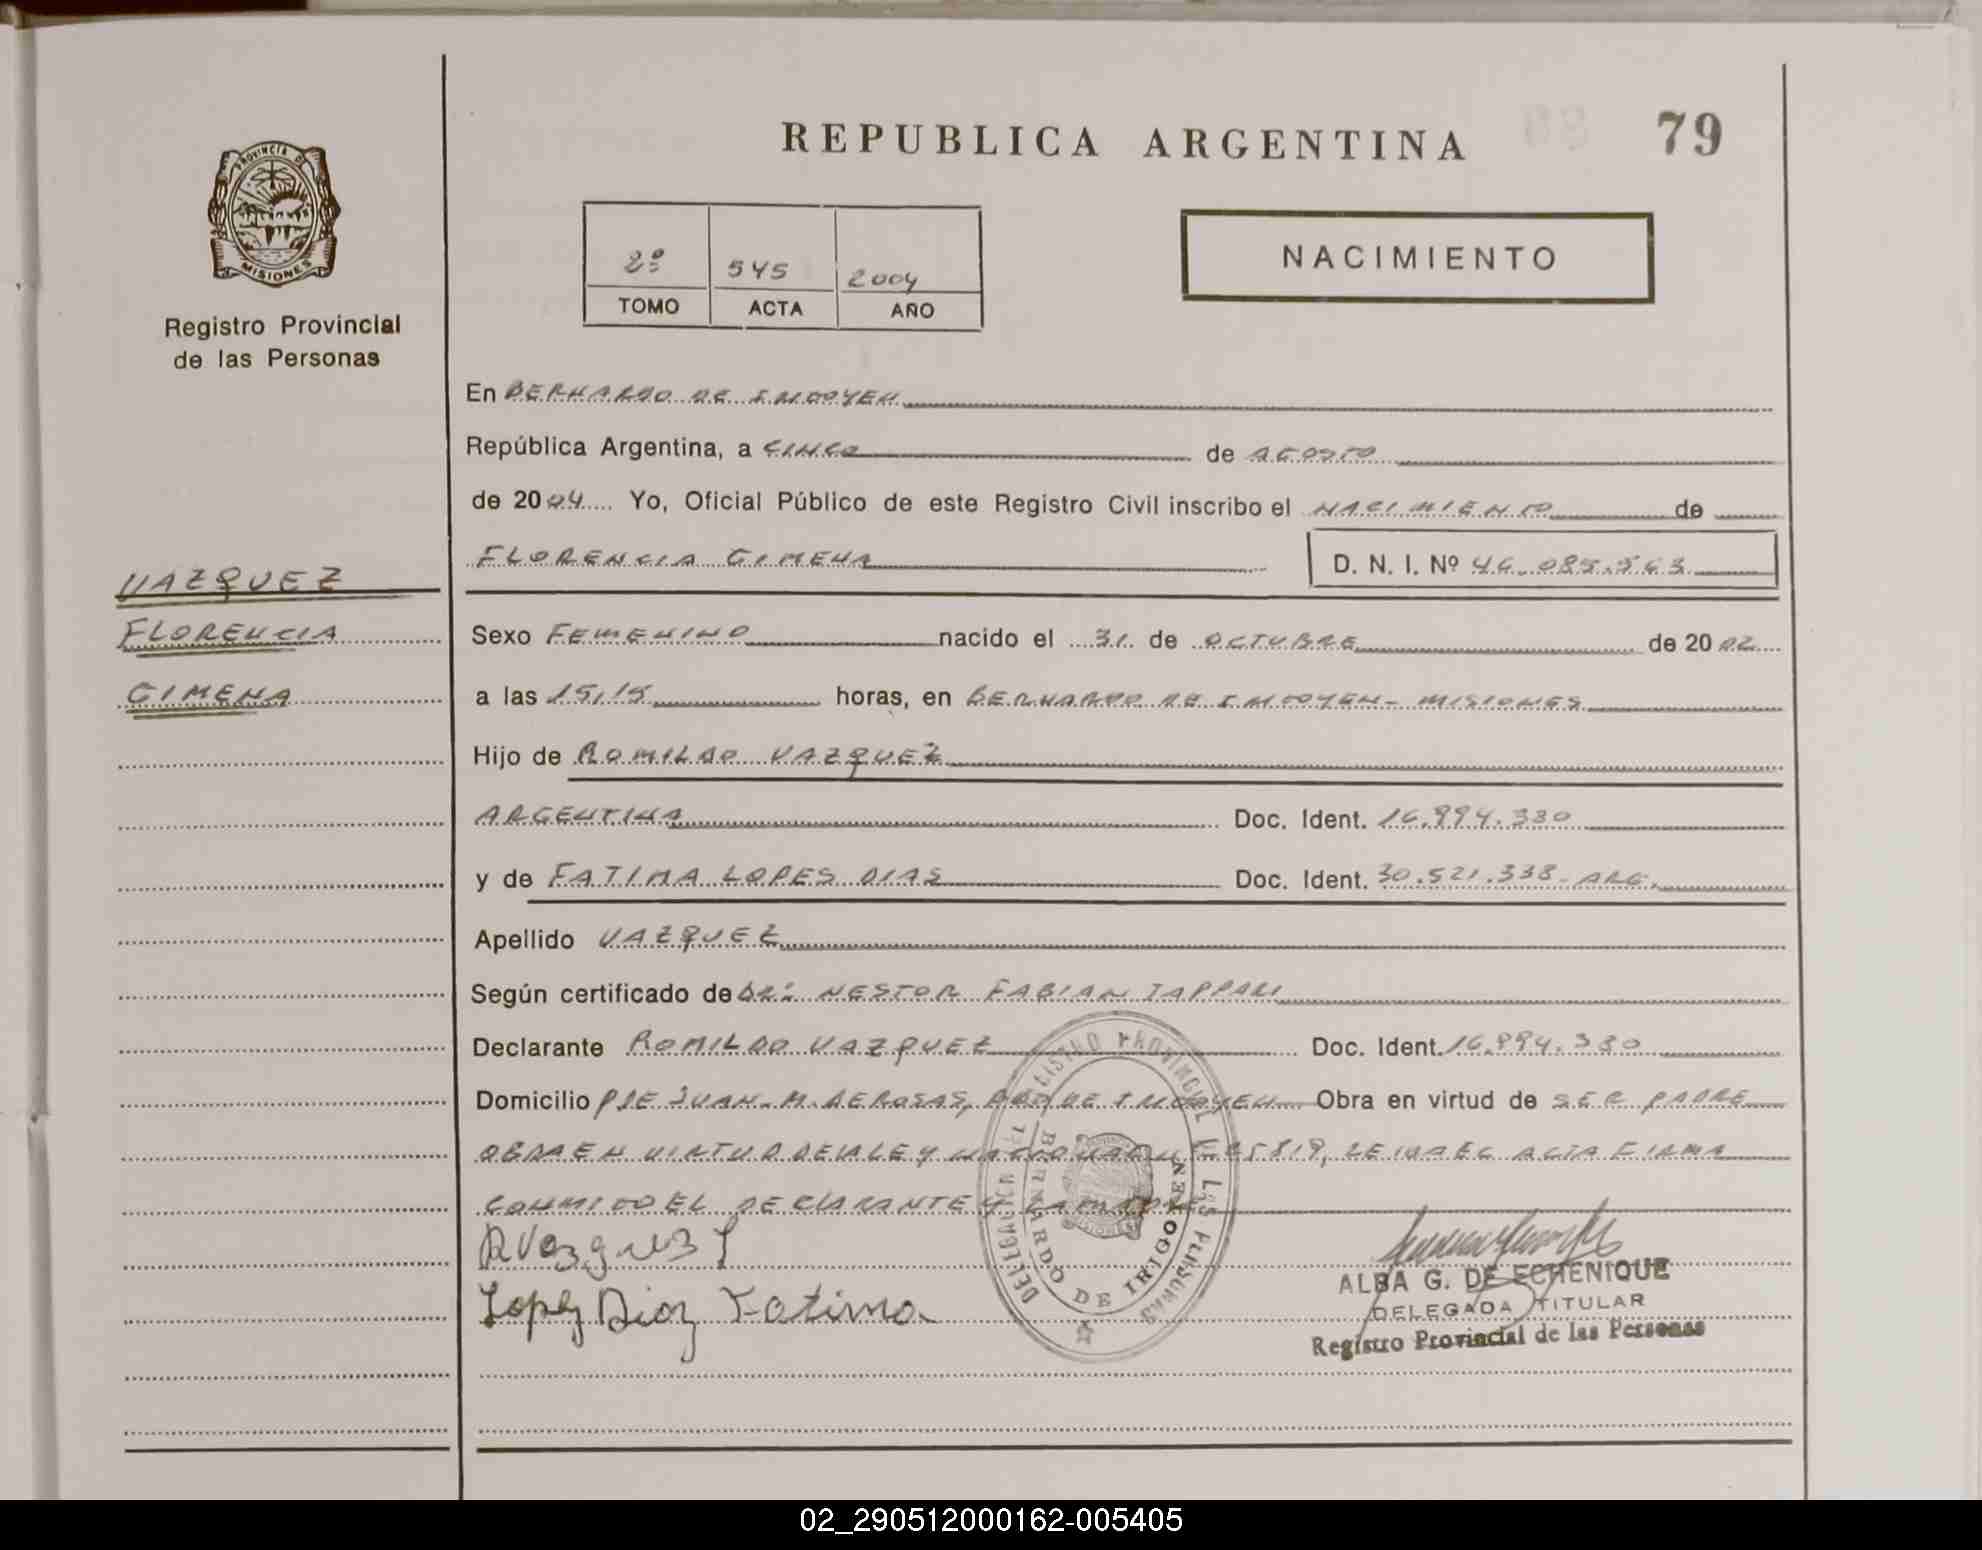 REPUBLICA ARGENTINA
79
PROVINCIA DE
MISIONES
Registro Provincial
de las Personas
2º 545 2004
TOMO ACTA AÑO
NACIMIENTO
En BERNARDO DE IRIGOYEN
República Argentina, a CINCO de AGOSTO
de 2004 Yo, Oficial Público de este Registro Civil inscribo el NACIMIENTO de
FLORENCIA GIMENA D. N. I. Nº 46.085.563
VAZQUEZ
FLORENCIA
GIMENA
Sexo FEMENINO nacido el 31 de OCTUBRE de 2002
a las 15,15 horas, en BERNARDO DE IRIGOYEN - MISIONES
Hijo de ROMILDO VAZQUEZ
ARGENTINA Doc. Ident. 16.994.380
y de FATIMA LOPES DIAS Doc. Ident. 30.521.338 - ARG.
Apellido VAZQUEZ
Según certificado de DR: NESTOR FABIAN TAPPARI
Declarante ROMILDO VAZQUEZ Doc. Ident. 16.994.380
Domicilio PJE JUAN. M. DE ROSAS, BDO DE IRIGOYEN Obra en virtud de SER PADRE
OBRA EN VIRTUD DE LA LEY NACIONAL Nº 25819, LEIDA EL ACTA FIRMA
CONMIGO EL DECLARANTE Y LA MADRE
RVazquez
Lopez Diaz Fatima
REGISTRO PROVINCIAL DE LAS PERSONAS
DELEGACION
BERNARDO DE IRIGOYEN
ALBA G. DE ECHENIQUE
DELEGADA TITULAR
Registro Provincial de las Personas
02_290512000162-005405